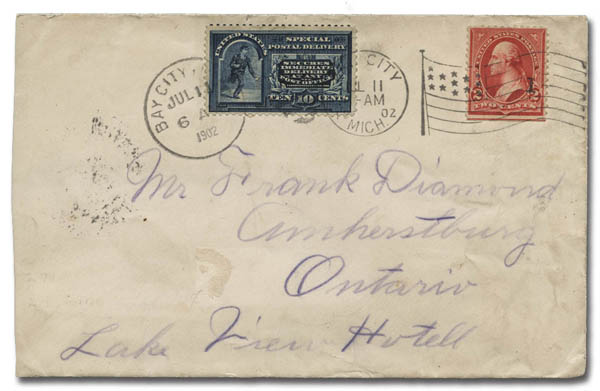 UNITED STATES
SPECIAL
POSTAL DELIVERY
SECURES
IMMEDIATE
DELIVERY
AT ANY
POST OFFICE
TEN 10 CENTS
BAY CITY
JUL 11
6 A
1902
CITY
L 11
-AM
02
MICH.
UNITED STATES POSTAGE
2 2
TWO CENTS
Mr Frank Diamond
Amherstburg
Ontario
Lake View Hotell